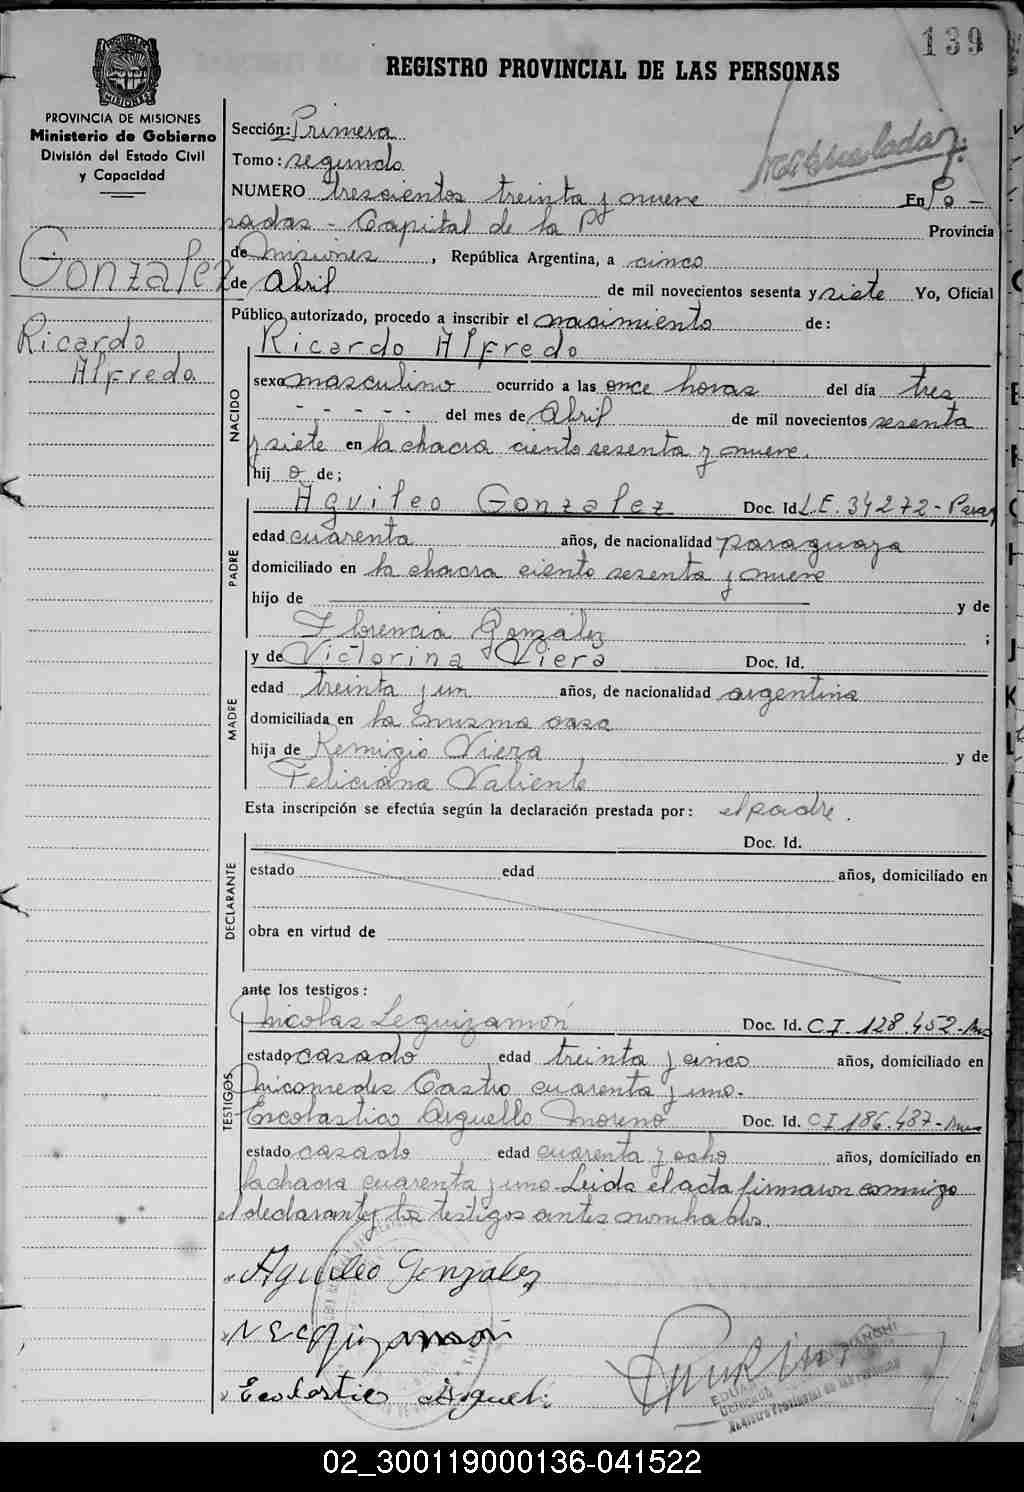 139
REGISTRO PROVINCIAL DE LAS PERSONAS
MISIONES
PROVINCIA DE MISIONES
Ministerio de Gobierno
División del Estado Civil
y Capacidad
Gonzalez
Ricardo
Alfredo
Sección: Primera
Tomo: segundo
NUMERO trescientos treinta y nueve En Po-
sadas - Capital de la P Provincia
de Misiones, República Argentina, a cinco
de Abril de mil novecientos sesenta y siete Yo, Oficial
Público autorizado, procedo a inscribir el nacimiento de:
NACIDO
Ricardo Alfredo
sexo masculino ocurrido a las once horas del día tres
- - - - - del mes de Abril de mil novecientos sesenta
y siete en la chacra ciento sesenta y nueve.
hijo de;
PADRE
Aguileo Gonzalez Doc. Id. L.E. 34272-Parag
edad cuarenta años, de nacionalidad paraguaya
domiciliado en la chacra ciento sesenta y nueve
hijo de y de
Florencia González ;
MADRE
y de Victorina Viera Doc. Id.
edad treinta y un años, de nacionalidad argentina
domiciliada en la misma casa
hija de Remigio Viera y de
Feliciana Valiente
Esta inscripción se efectúa según la declaración prestada por: el padre.
DECLARANTE
Doc. Id.
estado edad años, domiciliado en
obra en virtud de
ante los testigos:
TESTIGOS
Nicolas Leguizamón Doc. Id. C.I. 128.452-Mns
estado casado edad treinta y cinco años, domiciliado en
Nicomedes Castro cuarenta y uno.
Escolastico Arguello Moreno Doc. Id. CI 186.487-Mns
estado casado edad cuarenta y ocho años, domiciliado en
la chacra cuarenta y uno. Leida el acta firmaron conmigo
el declarante y los testigos antes nombrados.
Aguileo Gonzalez
Escolastico Arguell
Registro Provincial de las Personas
02_300119000136-041522